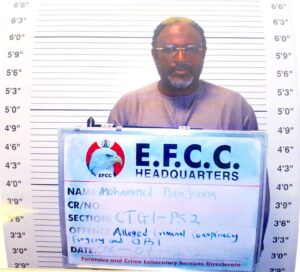 6'6"
6'3"
6'0"
5'9"
5'6"
5'3"
5'0"
4'9"
4'6"
4'3"
4'0"
3'9"
3'6"
6'6"
6'3"
6'0"
5'9"
5'6"
5'3"
5'0"
4'9"
4'6"
4'3"
4'0"
3'9"
3'6"
EFCC
E.F.C.C.
HEADQUARTERS
NAME Mohammed
CR/NO
SECTION: CTGI-PS2
OFFENCE Alleged Criminal Conspiracy
Forgery and OBI
DATE
Forensics and Crime Laboratory Services Directorate